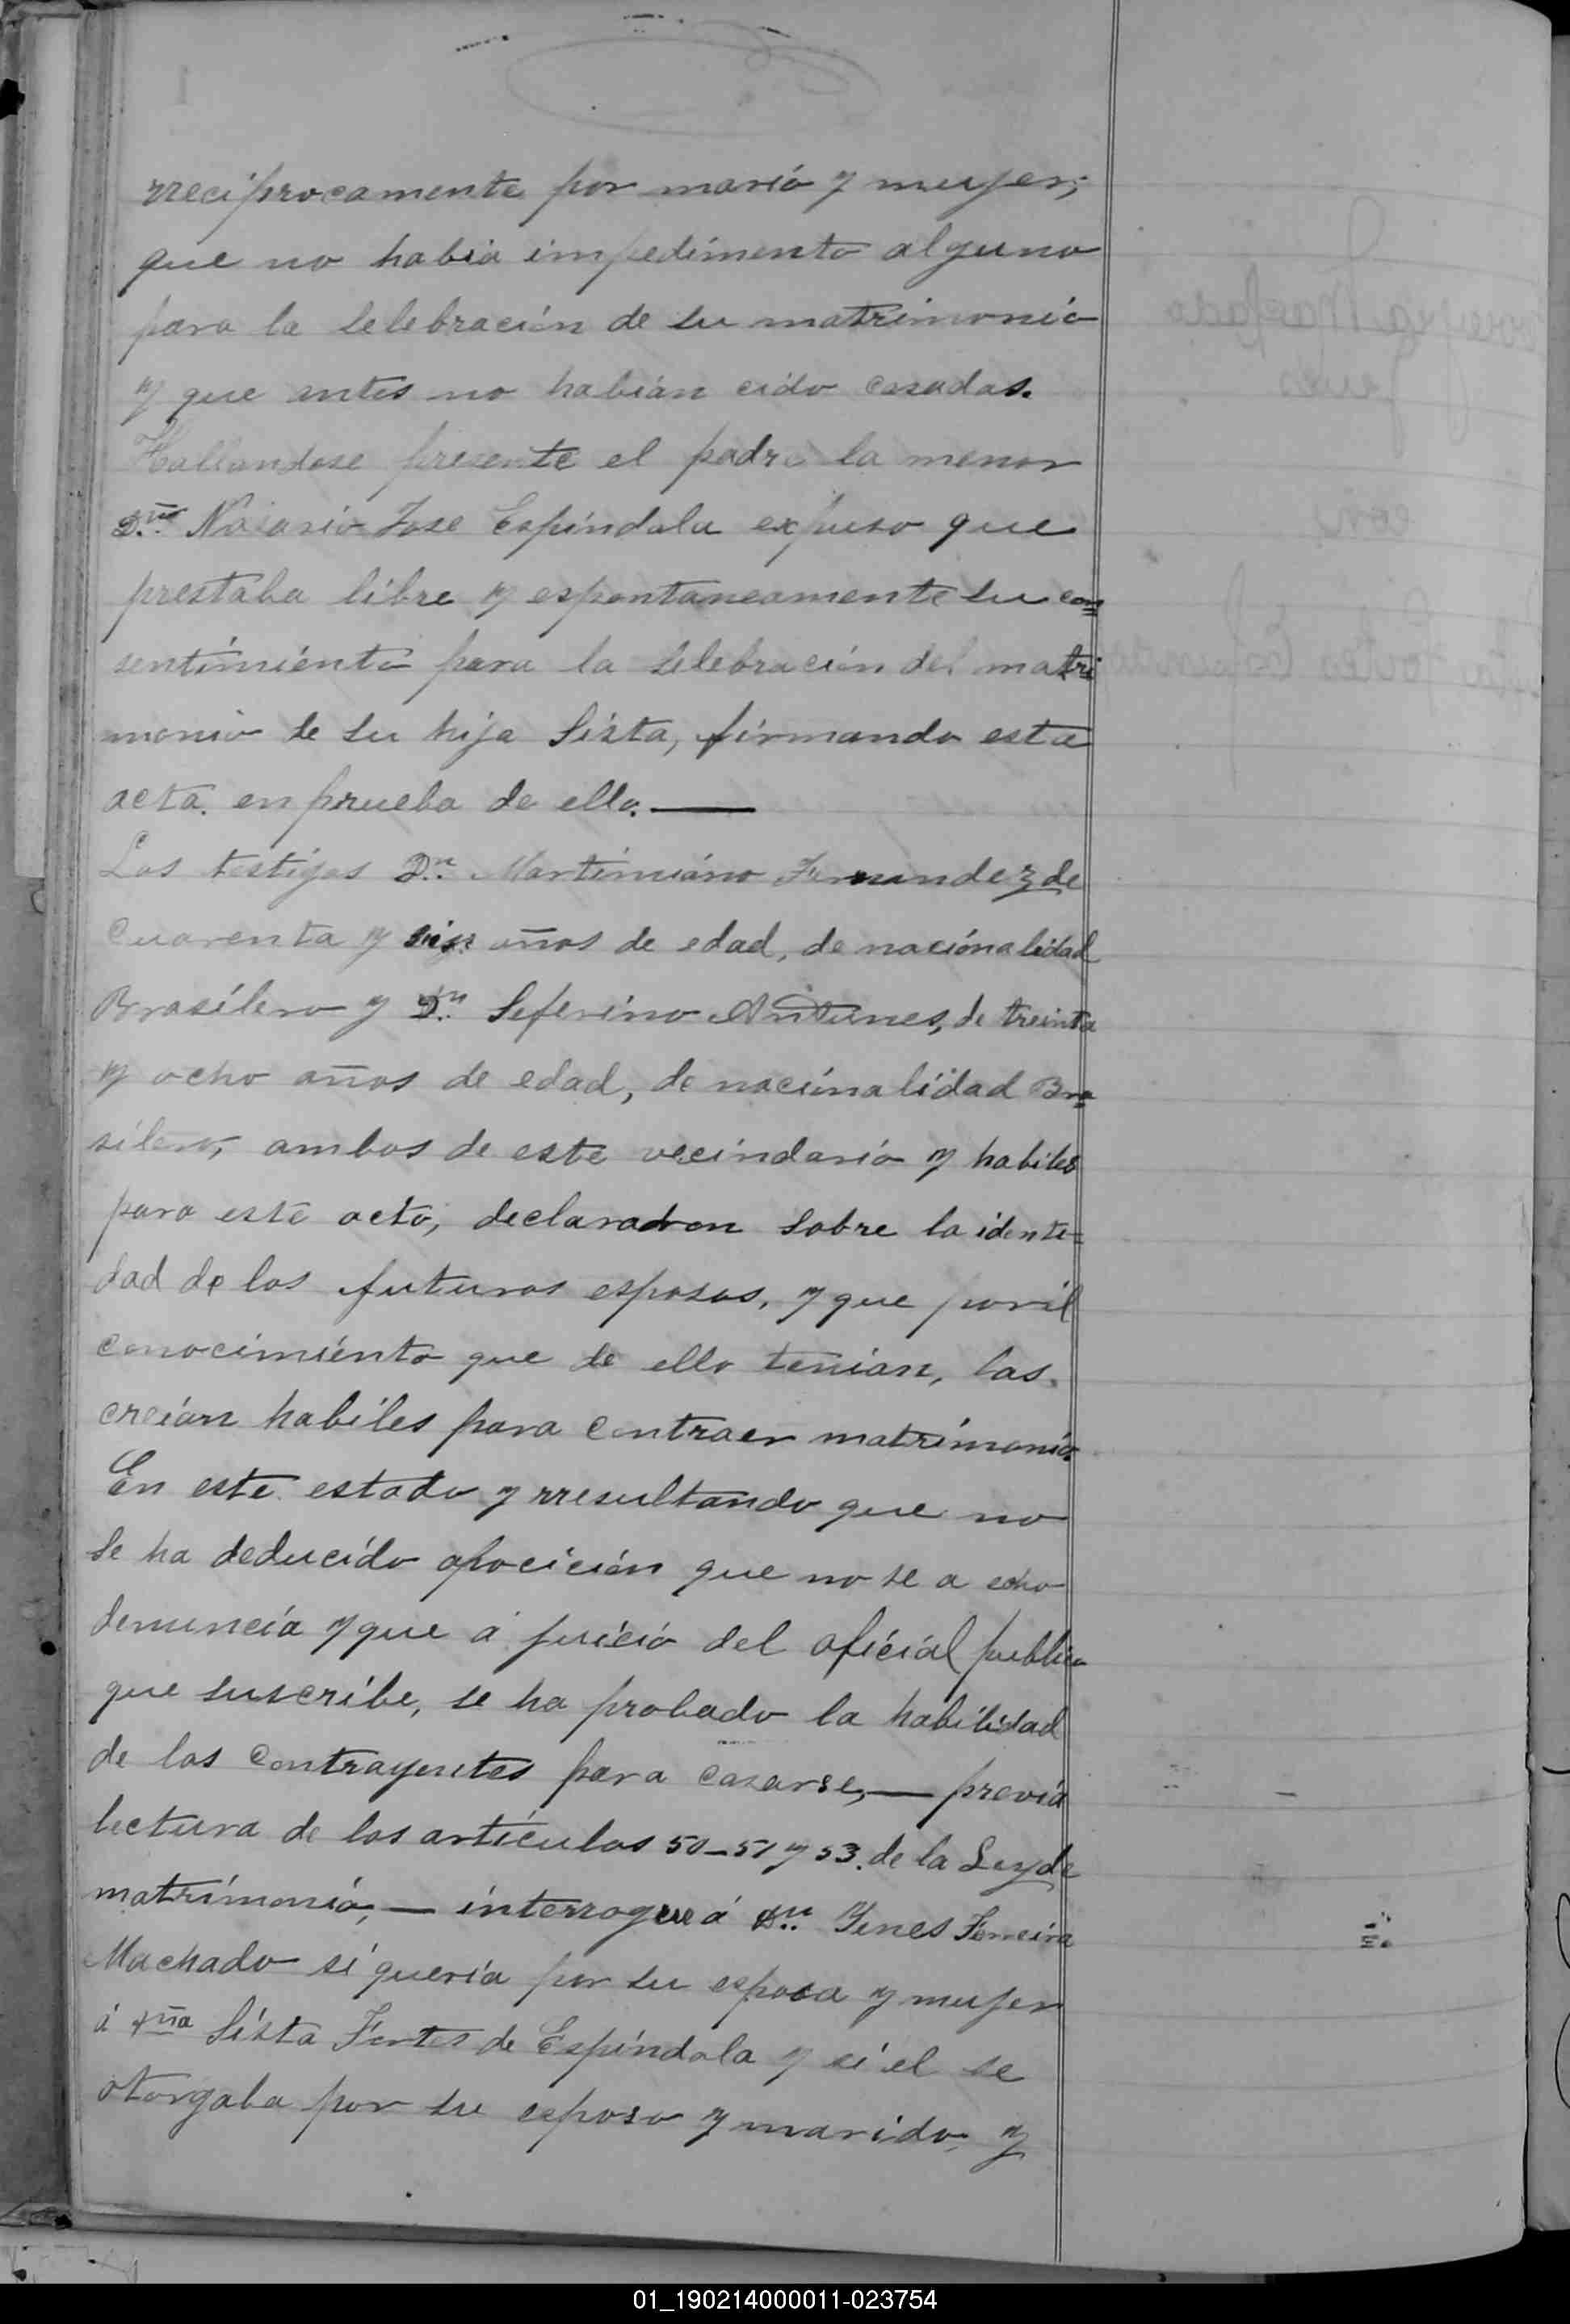 rreciprocamente por mario y mujer,
que no habia impedimento alguno
para la selebración de su matrimonio
y que antes no habián cido casados.
Hallandose presente el padre la menor
Dño Nasario Jose Espíndola expuso que
prestaba libre y espontaneamente su con
sentimiento para la selebración del matri
monio de su hija Sista, firmando esta
acta. en prueba de ello.—
Los testigos Dn Martimiáno Fernandez de
Cuarenta y años de edad, de naciónalidad
Brasilero y Dn Seferino Antunes, de treinta
y ocho años de edad, de naciónalidad Bra
silero, ambos de este vecindario y habiles
para este acto, declararon sobre la idente-
dad de los futuros esposos, y que por él
conocimiénto que de ello tenian, los
creián habiles para contraer matrimonio.
En este estado y rresultando que no
se ha deducido opocición que no se a echo
denuncia y que á juicio del oficial publico
que suscribe, se ha probado la habilidad
de los contrayentes para casarse,— previa
lectura de los artículos 50-51 y 53. de la Ley de
matrimonio,— interrogue á Dn Genes Ferreira
Machado si queria por su esposa y mujer
á dña Sista Fortes de Espíndola y si el se
otorgaba por su esposo y marido, y
01_190214000011-023754